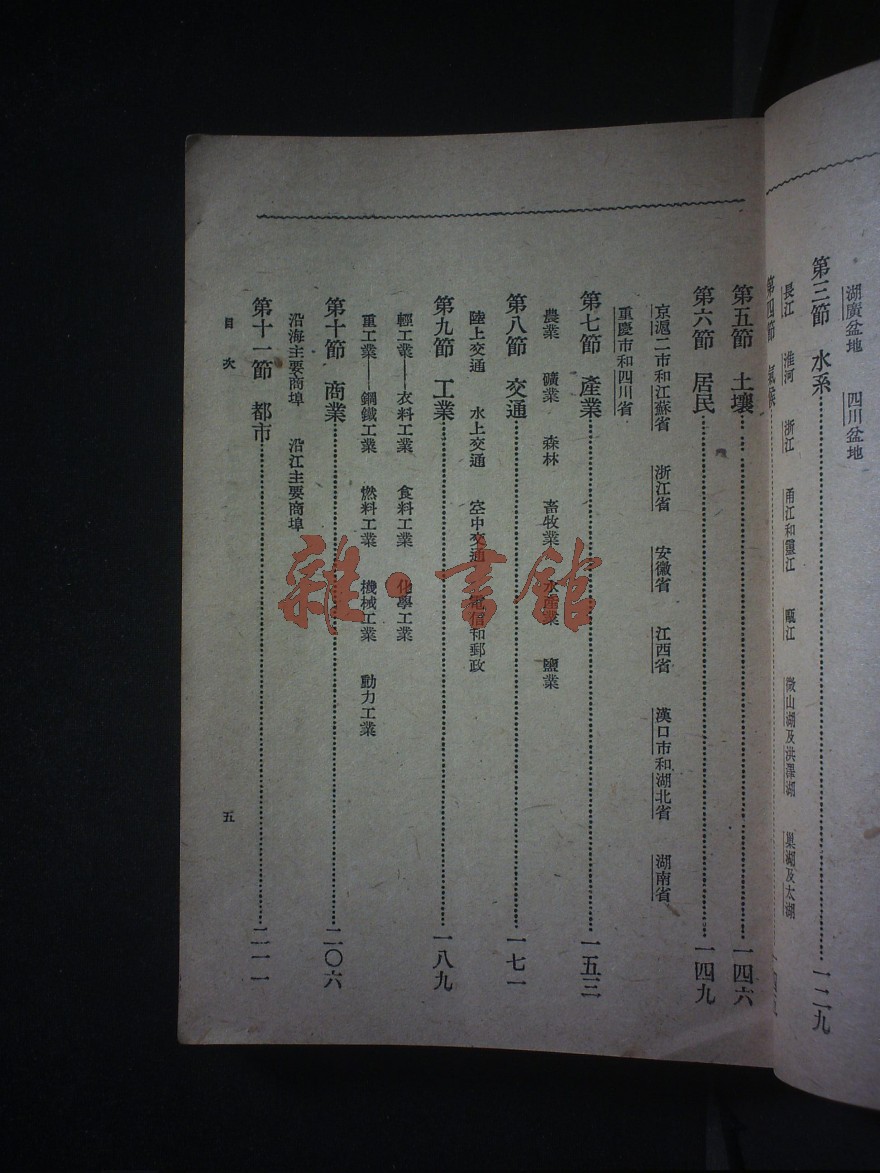 湖廣盆地　四川盆地
第三節　水系……一二九
長江　淮河　浙江　甬江和靈江　甌江　微山湖及洪澤湖　巢湖及太湖
第四節　氣候……一四
第五節　土壤……一四六
第六節　居民……一四九
京滬二市和江蘇省　浙江省　安徽省　江西省　漢口市和湖北省　湖南省
重慶市和四川省
第七節　產業……一五三
農業　礦業　森林　畜牧業　水產業　鹽業
第八節　交通……一七一
陸上交通　水上交通　空中交通　電信和郵政
第九節　工業……一八九
輕工業——衣料工業　食料工業　化學工業
重工業——鋼鐵工業　燃料工業　機械工業　動力工業
第十節　商業……二〇六
沿海主要商埠　沿江主要商埠
第十一節　都市……二一一
目次　五
雜·書館